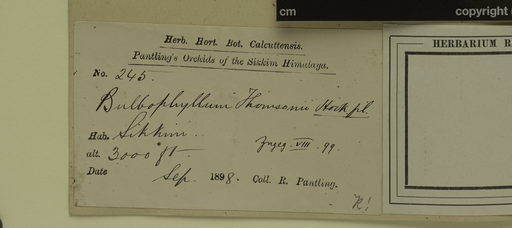 cm
copyright
Herb. Hort. Bot. Calcuttensis.
Pantling's Orchids of the Sikkim Himalaya.
HERBARIUM R
No. 245.
Bulbophyllum Thomsonii Hook fl.
Hab. Sikkim.
alt. 3000 ft.
VIII. 99.
Date Sep. 1898. Coll. R. Pantling.
K!